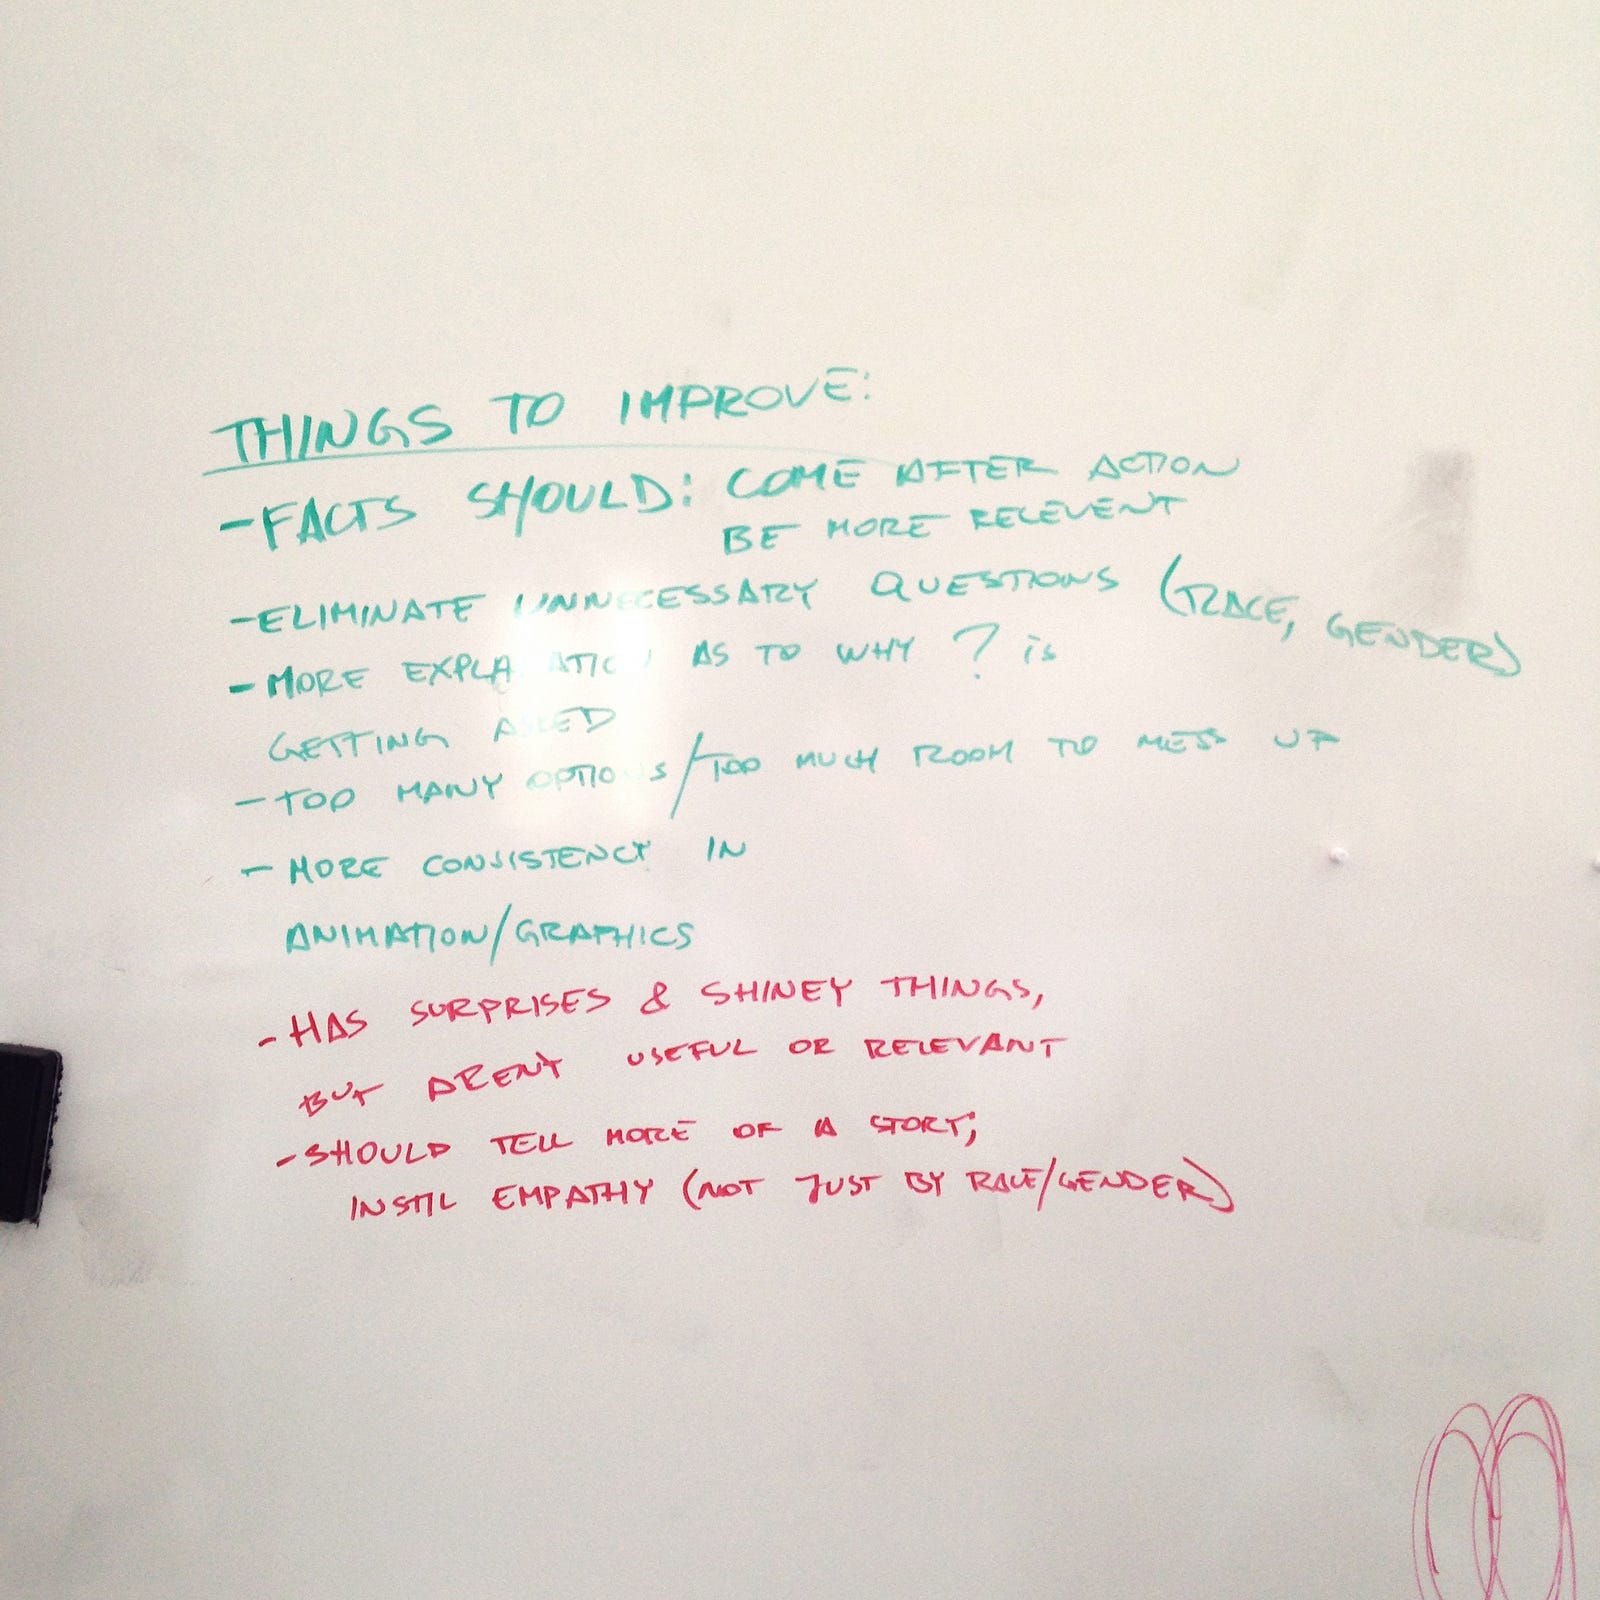 THINGS TO IMPROVE:
- FACTS SHOULD: COME AFTER ACTION
BE MORE RELEVENT
- ELIMINATE UNNECESSARY QUESTIONS (RACE, GENDER)
- MORE EXPLANATION AS TO WHY ? is
GETTING ASKED
- TOO MANY OPTIONS/TOO MUCH ROOM TO MESS UP
- MORE CONSISTENCY IN
ANIMATION/GRAPHICS
- HAS SURPRISES & SHINEY THINGS,
BUT ARENT USEFUL OR RELEVANT
- SHOULD TELL MORE OF A STORY;
INSTIL EMPATHY (NOT JUST BY RACE/GENDER)